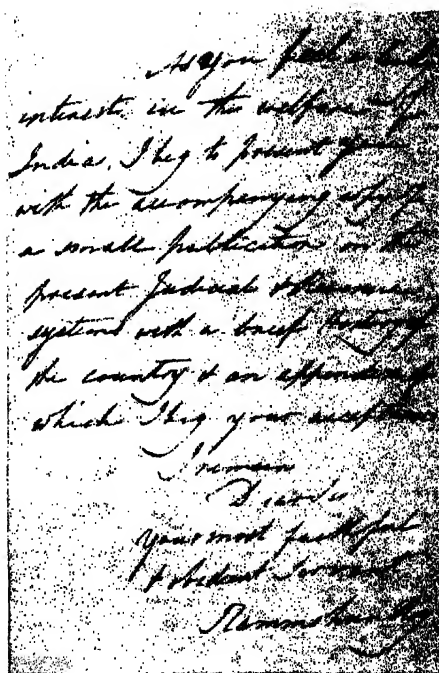 As you feel a
interest in the welfare of
India, I beg to present you
with the accompanying copy of
a small publication on the
present Judicial & Revenue
systems with a brief history of
the country & an appendix of
which I beg your acceptance
I remain
Dear Sir
your most faithful
& obedient Servant
Rammohun Roy